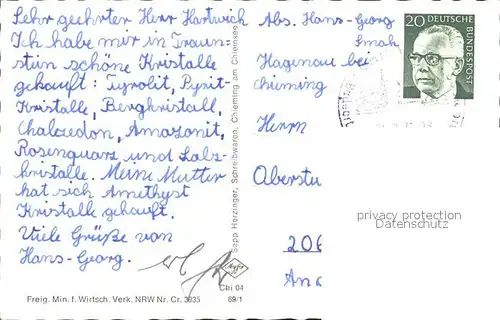 Sehr geehrter Herr Hartwich
Ich habe mir in Traun-
stein schöne Kristalle
gekauft: Pyrolit, Pyrit-
Kristalle, Bergkristall,
Chalzedon, Amazonit,
Rosenquarz und Salz-
kristalle. Meine Mutter
hat sich Amethyst
Kristalle gekauft.
Viele Grüße von
Hans-Georg.
Freig. Min. f. Wirtsch. Verk. NRW Nr. Cr. 3935
Sepp Herzinger, Schreibwaren, Chieming am Chiemsee
Chi 04
69/1
Abs. Hans-Georg
Hagenau bei
Chieming
Herrn
Oberstu
206
20 DEUTSCHE
BUNDESPOST
privacy protection
Datenschutz